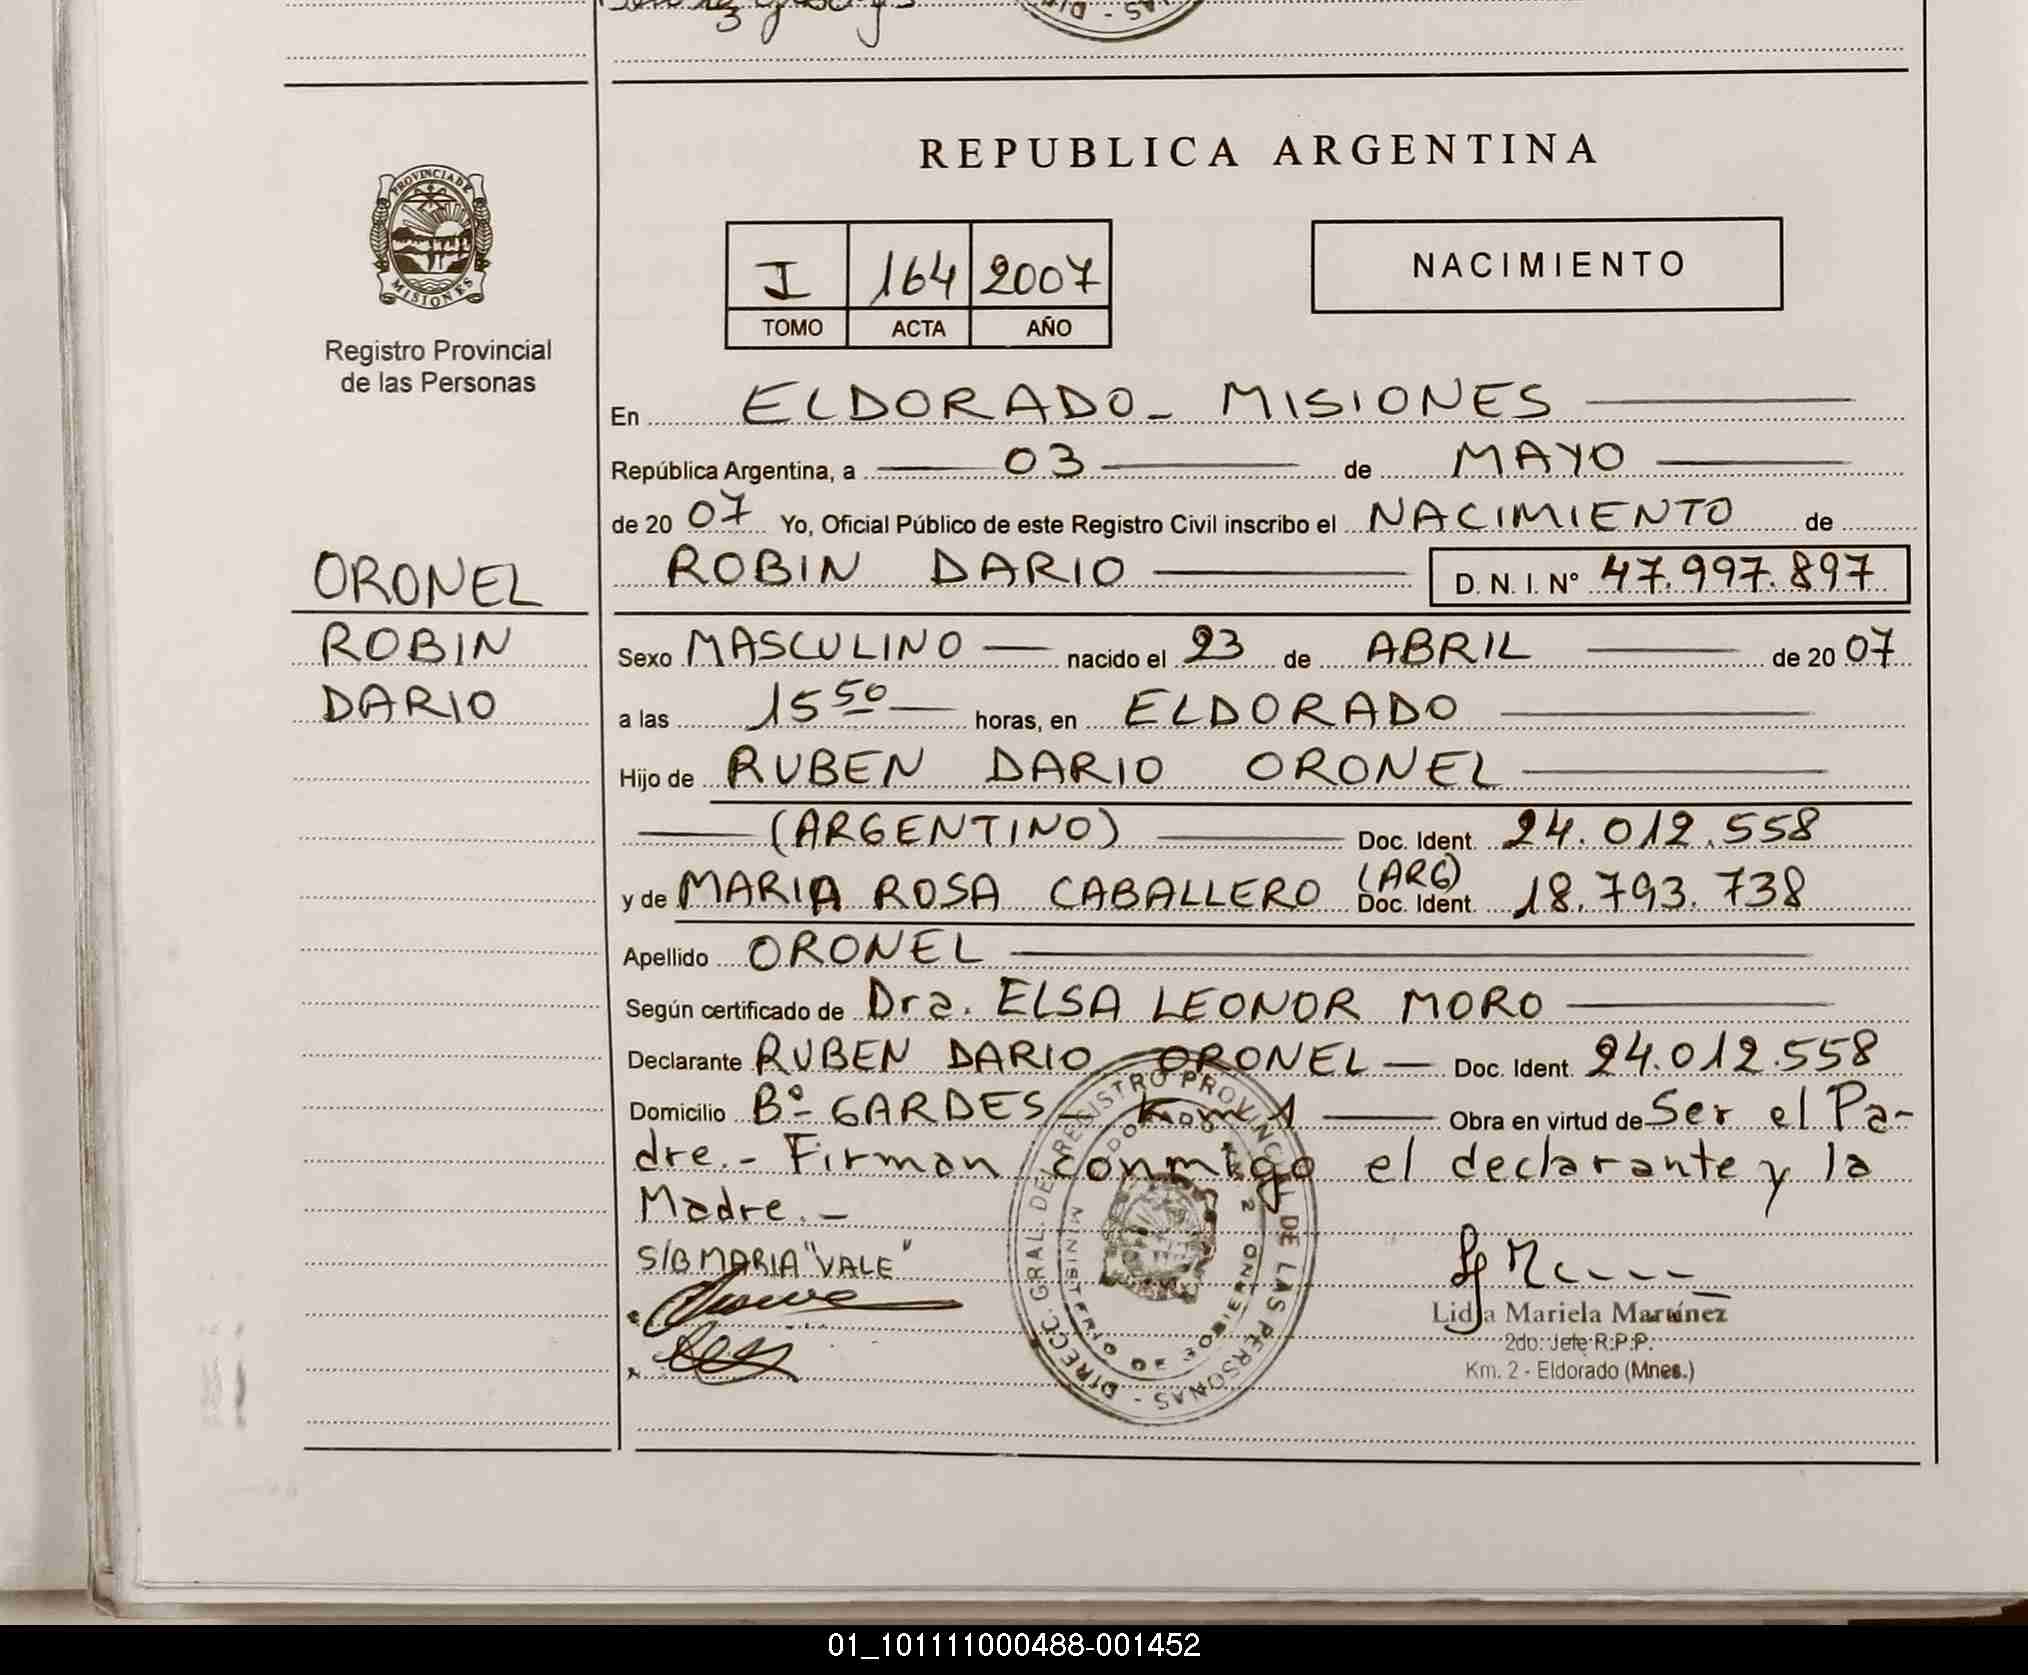 REPUBLICA ARGENTINA
PROVINCIA DE
MISIONES
Registro Provincial
de las Personas
I 164 2007
TOMO ACTA AÑO
NACIMIENTO
En ELDORADO - MISIONES
República Argentina, a 03 de MAYO
de 20 07 Yo, Oficial Público de este Registro Civil inscribo el NACIMIENTO de
ROBIN DARIO D. N. I. Nº 47.997.897
ORONEL
ROBIN
DARIO
Sexo MASCULINO nacido el 23 de ABRIL de 20 07
a las 15 50 horas, en ELDORADO
Hijo de RUBEN DARIO ORONEL
(ARGENTINO) Doc. Ident. 24.012.558
y de MARIA ROSA CABALLERO (ARG) Doc. Ident. 18.793.738
Apellido ORONEL
Según certificado de Dra. ELSA LEONOR MORO
Declarante RUBEN DARIO ORONEL Doc. Ident. 24.012.558
Domicilio Bº GARDES - Km 1 Obra en virtud de Ser el Pa-
dre.- Firman conmigo el declarante y la
Madre.-
S/B MARIA "VALE"
DIRECC. GRAL. DEL REGISTRO PROVINCIAL DE LAS PERSONAS
MINISTERIO DE GOBIERNO
ELDORADO KM. 2
Lidia Mariela Martínez
2do. Jefe R.P.P.
Km. 2 - Eldorado (Mnes.)
01_101111000488-001452